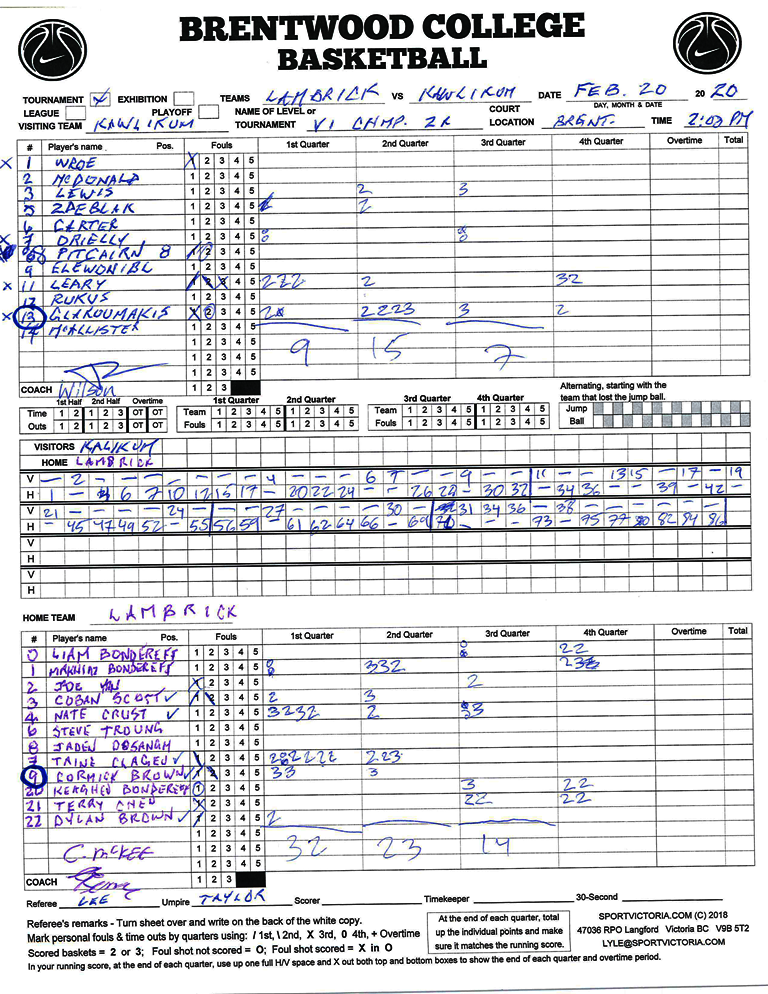 BRENTWOOD COLLEGE
BASKETBALL
TOURNAMENT X EXHIBITION TEAMS LAMBRICK VS KAWLIKUM DATE FEB. 20 20 20
LEAGUE PLAYOFF NAME OF LEVEL or COURT DAY, MONTH & DATE
VISITING TEAM KAWLIKUM TOURNAMENT VI CHMP. 2R LOCATION BRENT. TIME 2:03 PM
# Player's name Pos. Fouls 1st Quarter 2nd Quarter 3rd Quarter 4th Quarter Overtime Total
X 1 WROE X 2 3 4 5
2 McDONALD 1 2 3 4 5
3 LEWIS 1 2 3 4 5 2 3
5 ZDEBLAK 1 2 3 4 5 2
6 CARTER 1 2 3 4 5
X 7 DRIELLY 1 2 3 4 5
PITCAIRN 8 3 4 5
9 ELEWONIBI 1 2 3 4 5
X 11 LEARY 4 5 222 2 32
12 RUKUS 1 2 3 4 5
X 13 GLAROUMAKIS X 2 3 4 5 2 2223 3 2
14 McALLISTER 1 2 3 4 5
1 2 3 4 5 9 15 7
1 2 3 4 5
1 2 3 4 5
COACH Wilson 1 2 3
1st Half 2nd Half Overtime 1st Quarter 2nd Quarter 3rd Quarter 4th Quarter Alternating, starting with the
team that lost the jump ball.
Time 1 2 1 2 3 OT OT Team 1 2 3 4 5 1 2 3 4 5 Team 1 2 3 4 5 1 2 3 4 5 Jump
Outs 1 2 1 2 3 OT OT Fouls 1 2 3 4 5 1 2 3 4 5 Fouls 1 2 3 4 5 1 2 3 4 5 Ball
VISITORS KALIKUM
HOME LAMBRICK
V – 2 – – – – – – – 4 – – – 6 7 – – 9 – – 11 – – 13 15 – 17 – 19
H 1 – 4 6 7 10 12 15 17 – 20 22 24 – – 26 28 – 30 32 – 34 36 – – 39 – 42 –
V 21 – – – – 24 – – – 27 – – – – 30 – 31 34 36 – 38 – – – – – –
H – 45 47 49 52 – 55 56 59 – 61 62 64 66 – 69 – – – 73 – 75 77 80 82 84 86
V
H
V
H
HOME TEAM LAMBRICK
# Player's name Pos. Fouls 1st Quarter 2nd Quarter 3rd Quarter 4th Quarter Overtime Total
0 LIAM BONDEREFF 1 2 3 4 5 22
1 MAKHIAI BONDEREFF 1 2 3 4 5 332
2 JOE X 2 3 4 5 2
3 COBAN SCOTT ✓ 3 4 5 2 3
4 NATE CRUST ✓ 1 2 3 4 5 3232 2 33
6 STEVE TROUNG 1 2 3 4 5
8 JADEN DOSANGH 1 2 3 4 5
7 TAINE CLAGEU ✓ 2 3 4 5 223
9 CORMICK BROWN ✓ 3 4 5 33 3
20 KEAGHEN BONDEREFF 1 2 3 4 5 3 22
21 TERRY CHEN X 2 3 4 5 22 22
22 DYLAN BROWN ✓ 2 3 4 5 2
1 2 3 4 5 32 23 14
C. McKEE 1 2 3 4 5
1 2 3 4 5
COACH 1 2 3
Referee LEE Umpire TAYLOR Scorer Timekeeper 30-Second
Referee's remarks - Turn sheet over and write on the back of the white copy.
Mark personal fouls & time outs by quarters using: / 1st, \ 2nd, X 3rd, 0 4th, + Overtime
Scored baskets = 2 or 3; Foul shot not scored = O; Foul shot scored = X in O
In your running score, at the end of each quarter, use up one full H/V space and X out both top and bottom boxes to show the end of each quarter and overtime period.
At the end of each quarter, total
up the individual points and make
sure it matches the running score.
SPORTVICTORIA.COM (C) 2018
47036 RPO Langford Victoria BC V9B 5T2
LYLE@SPORTVICTORIA.COM